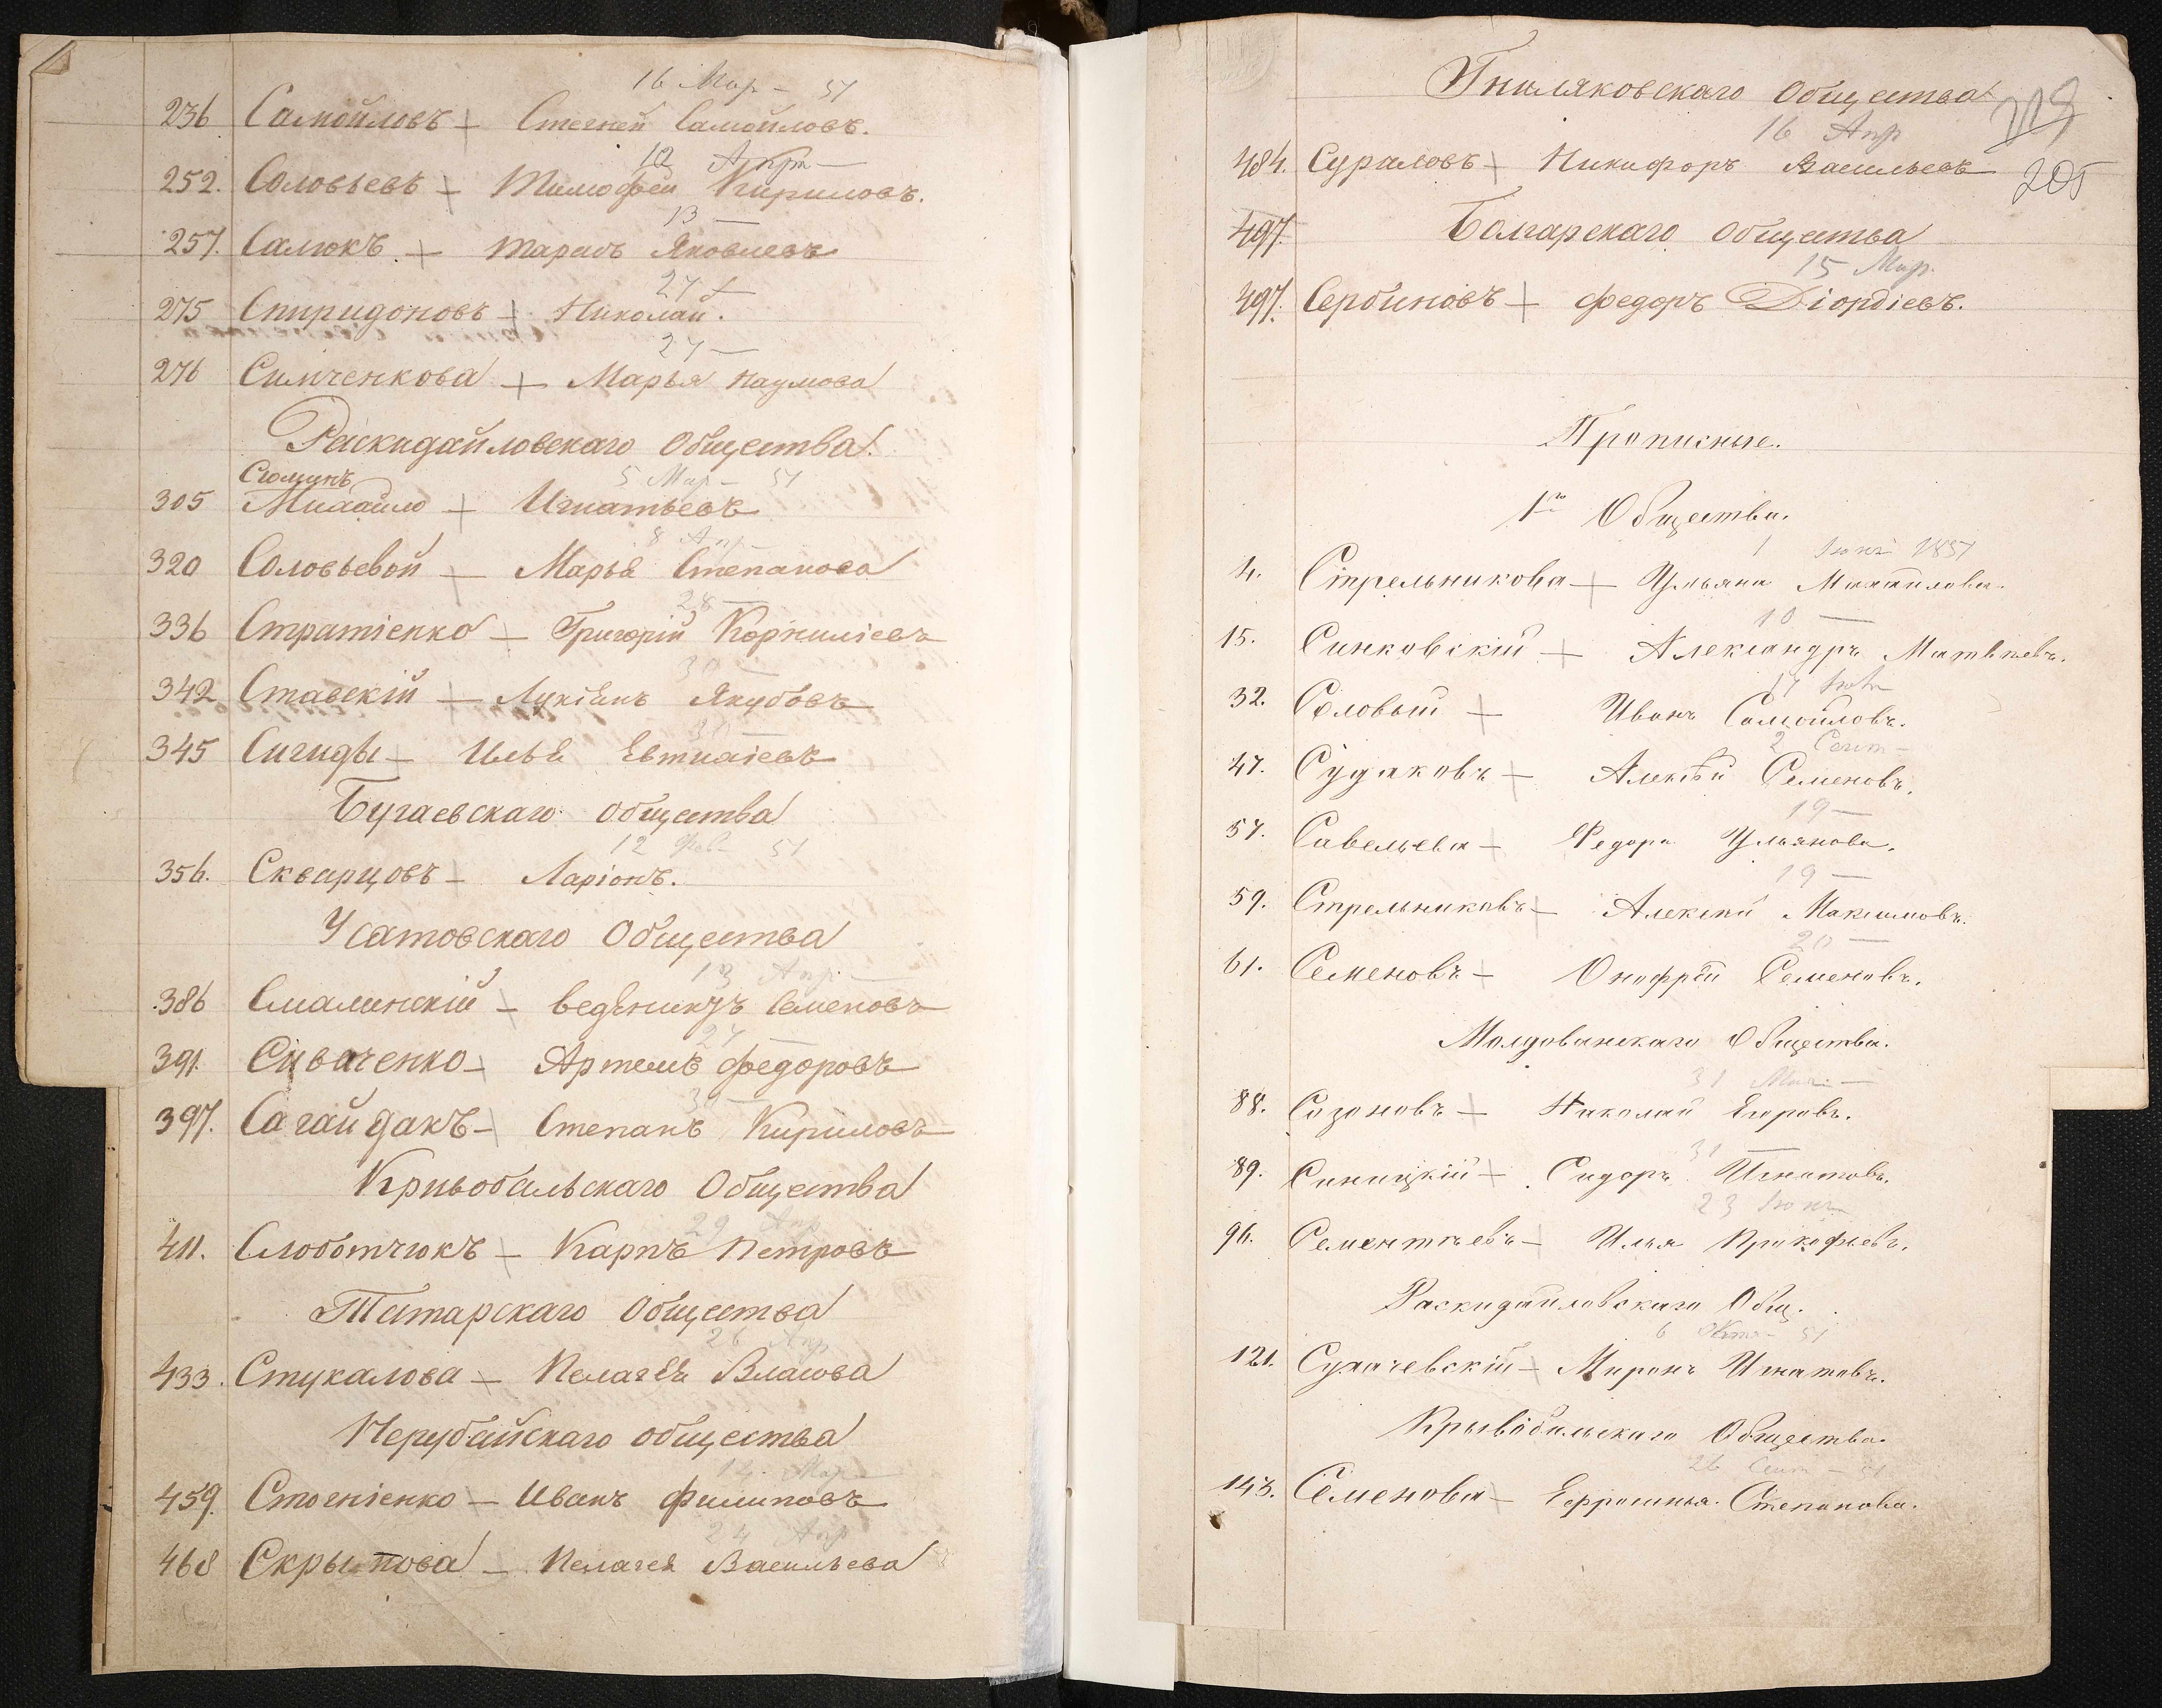 16 Мар - 51
236 Самойловъ - Стегней Самойловъ.
12 Апр -
252. Соловьевъ - Тимофей Кириловъ.
13 -
257. Салюкъ - Тарасъ Яковлевъ
27 -
275 Спиридоновъ - Николай.
27 -
276 Симченкова - Марья Наумова
Раскидайловскаго Общества.
Сюмунъ 5 Мар - 51
305 Михайло - Игнатьевъ
8 Апр -
320 Соловьевой - Марья Степанова
28 -
336 Стратіенко - Григорій Корниліевъ
30 -
342 Ставскій - Лукіянъ Якубовъ
30 -
345 Сигиды - Илья Евтихіевъ
Бугаевскаго общества
12 Фев 51
356. Скварцовъ - Ларіонъ.
Усатовскаго Общества
13 Апр. -
386 Смалинскій - Семеновъ
27 -
391. Сиваченко - Артемъ Федоровъ
30 -
397. Сагайдакъ - Степанъ Кириловъ
Кривобальскаго Общества
29 Апр
411. Слоботчюкъ - Карпъ Петровъ
Татарскаго Общества
26 Апр
433. Стукалова - Пелагея Власова
Нерубайскаго общества
14 Мар -
459. Стогніенко - Иванъ Филиповъ
24 Апр
468 Скрыпова - Пелагея Васильева
Гниляковскаго Общества
119
16 Апр
484. Сураловъ - Никифоръ Васильевъ
205
497. Болгарскаго Общества
15 Мар.
497. Сербиновъ - Федоръ Діордіевъ.
Прописные.
1го Общества.
1 Іюнь 1851
4. Стрельникова - Ульяна
10 -
15. Синковскій - Александръ Матвѣевъ.
17
32. Соловый - Иванъ Самойловъ.
2 Сент -
47. Судаковъ - Алексѣй Семеновъ.
19 -
57. Савельева - Федора Ульянова.
19 -
59. Стрельниковъ - Алексѣй Максимовъ.
20 -
61. Семеновъ - Онофрій Семеновъ.
Молдованскаго Общества.
31 Мая -
88. Созоновъ - Николай Егоровъ.
31 -
89. Синицкій - Сидоръ Игнатовъ.
23 Іюнь
96. Сементѣевъ - Илья Прокофьевъ.
Раскидайловскаго Общ.
6 Окт - 51
121. Сухачевскій - Миронъ Игнатовъ.
Крывобальскаго Общества.
26 Сент - 51
143. Семенова - Ефросинья Степанова.